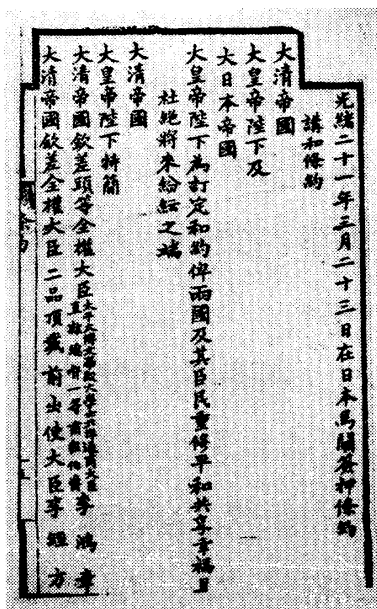 光緒二十一年三月二十三日在日本馬關簽押條約
講和條約
大清帝國
大皇帝陛下及
大日本帝國
大皇帝陛下為訂定和約俾兩國及其臣民重修平和共享幸福且
杜絕將來紛紜之端
大清帝國
大皇帝陛下特簡
大清帝國欽差頭等全權大臣太子太傅文華殿大學士北洋通商大臣
直隸總督一等肅毅伯爵李鴻章
大清帝國欽差全權大臣二品頂戴前出使大臣李經方